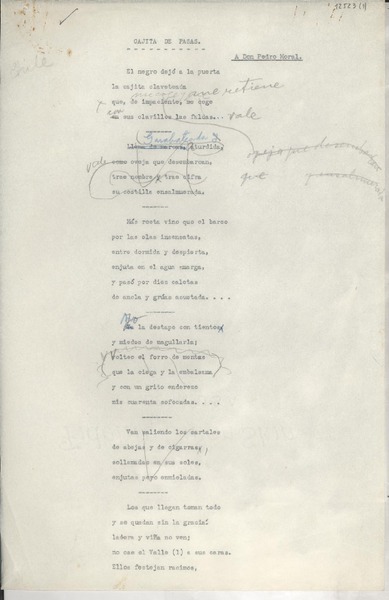 12523 (1)
CAJITA DE PASAS.
A Don Pedro Moral.
El negro dejó a la puerta
la cajita claveteada
me retiene
que, de impaciente, me coge
con
en sus clavillos las faldas... vale
Llena de marcas, aturdida,
vale
como oveja que desembarcan,
trae nombre y trae cifra
su costillo ensalmuerada.
Más recta vino que el barco
por las olas insensatas,
entre dormida y despierta,
enjuta en el agua amarga,
y pasó por diez caletas
de ancla y grúas asustada....
Yo
la destapo con tiento
y miedos de magullarla;
volteo el forro de mentas
que la ciega y la embalsama
y con un grito enderezo
mis cuarenta sofocadas....
Van saliendo los sartales
de abejas y de cigarras,
sollamadas en sus soles,
enjutas pero enmieladas.
Los que llegan toman todo
y se quedan sin la gracia:
ladera y viña no ven;
no cae el Valle (1) a sus caras.
Ellos festejan racimos,